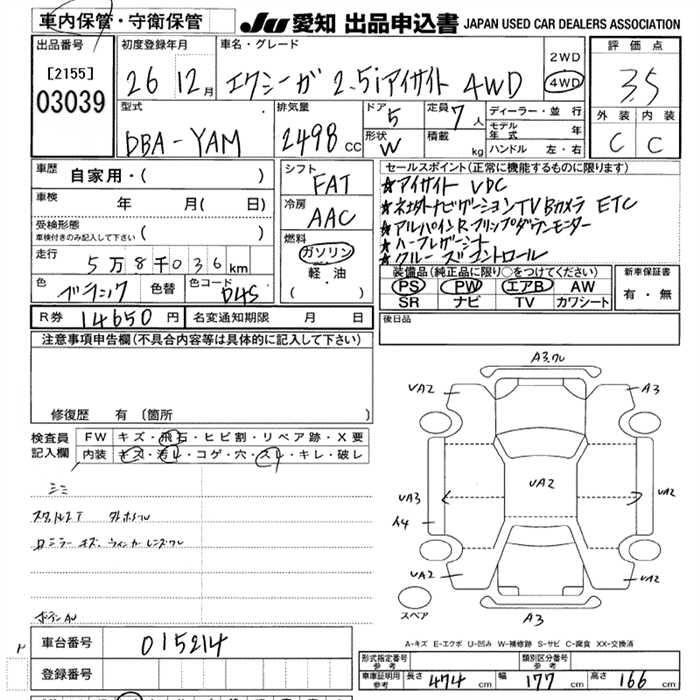 車内保管・守衛保管
JU 愛知 出品申込書 JAPAN USED CAR DEALERS ASSOCIATION
出品番号
[2155]
03039
初度登録年月
26 12月
車名・グレード
エクシーガ 2.5iアイサイト 4WD
2WD
4WD
評価点
3.5
外装 内装
C C
型式
DBA-YAM
排気量
2498 CC
ドア 5
形状 W
定員 7人
積載 kg
ディーラー・並行
モデル年式 年
ハンドル 左・右
車歴 自家用・( )
車検 年 月( 日)
受検形態
車検付きのみ記入して下さい ( )
走行 5万8千036km
色 色替 色コード D4S
シフト
FAT
冷房
AAC
燃料
ガソリン
軽油
( )
セールスポイント(正常に機能するものに限ります)
★アイサイト VDC
★ネ社外ナビゲーションTV Bカメラ ETC
★アルパインRフリップダウンモニター
★ハーフレザーシート
★クルーズコントロール
装備品(純正品に限り○をつけてください)
PS PW エアB AW
SR ナビ TV カワシート
新車保証書
有・無
R券 14650円 名変通知期限 月 日
後日品
注意事項申告欄(不具合内容等は具体的に記入して下さい)
修復歴 有 〔箇所 〕
検査員記入欄
FW キズ・飛石・ヒビ割・リペア跡・X要
内装 キズ・汚レ・コゲ・穴・スレ・キレ・破レ
シミ
ミラーキズ、ウィンカーレンズワレ
A3.ワレ
UA2 A3
UA3 UA2 UA2
A4
UA2 UA2
A3
スペア
A-キズ E-エクボ U-凹み W-補修跡 S-サビ C-腐食 XX-交換済
車台番号 015214
登録番号
形式指定番号 参考
類別区分番号 参考
車庫証明用 参考 長さ 474cm 幅 177cm 高さ 166cm